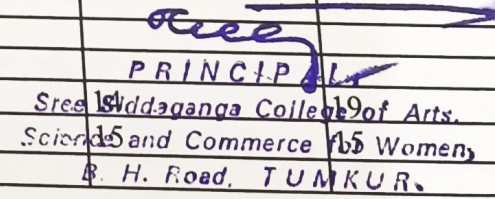 PRINCIPAL
Sree Siddaganga College of Arts,
14 19
Science and Commerce for Women,
15 15
B. H. Road, TUMKUR.